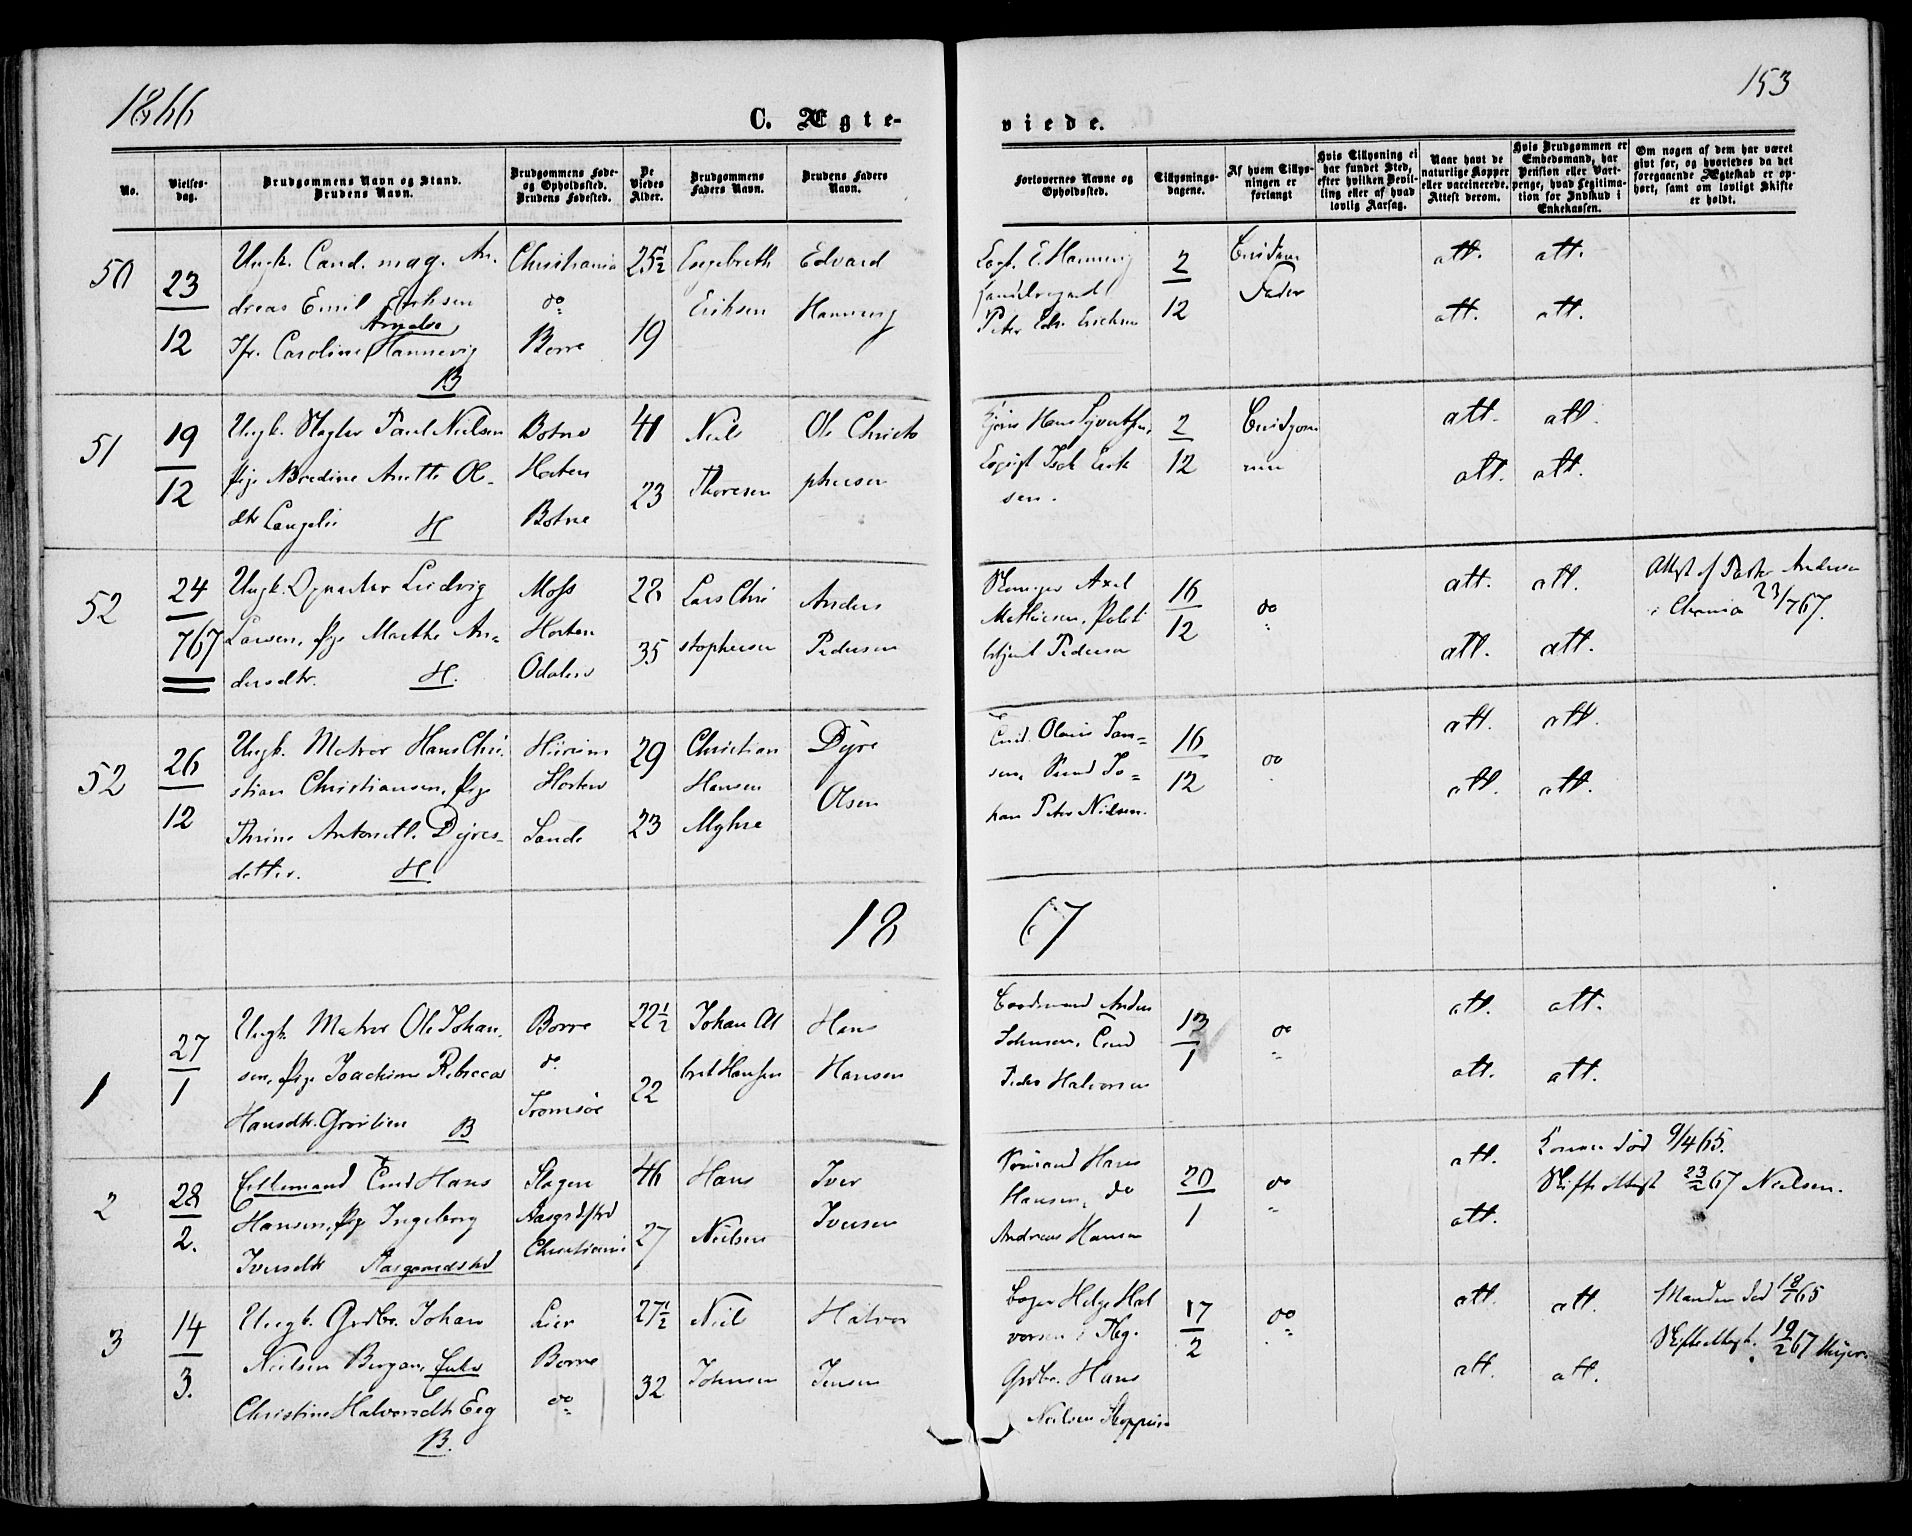 1866
153
C. Ægte-
viede.
No.
Vielses-
dag.
Brudgommens Navn og Stand.
Brudens Navn.
Brudgommens Føde-
og Opholdssted.
Brudens Fødested.
De
Viedes
Alder.
Brudgommens
Faders Navn.
Brudens Faders
Navn.
Forlovernes Navne og
Opholdssted.
Tillysnings-
dagene.
Af hvem Tillys-
ningen er
forlangt
Hvis Tillysning ei
har fundet Sted,
efter hvilken Bevil-
ling eller af hvad
lovlig Aarsag.
Naar havt de
naturlige Kopper
eller vaccinerede.
Attest derom.
Hvis Brudgommen er
Embedsmand, har
Pension eller Vart-
penge, hvad Legitima-
tion for Indskud i
Enkekassen.
Om nogen af dem har været
givt før, og hvorledes da det
foregaaende Ægteskab er op-
hørt, samt om lovligt Skifte
er holdt.
50
23
12
Ungk. Cand. mag. An-
dreas Emil Erichsen
Jfr. Caroline Hannevig
B
Christiania
do
Borre
25½
19
Engebreth
Erichsen
Edvard
Hannevig
Peter Edv. Erichsen
2
12
Brudens
Fader
att. att.
att. att.
51
19
12
Ungk. Slagter Paul Nielsen
Pige Bredine Anette Ol-
dtr Langelie
H
Botne
Horten
Botne
41
23
Niels
Thoresen
Ole Christo
phersen
2
12
Brudgom
men
att. att.
att. att.
52
24
767
Ungk. Ludvig
Larsen, Pige Marthe An-
dersdtr.
H.
Moss
Horten
Odalen
28
35
Lars Chri
stophersen
Anders
Pedersen
Axel
Mathiesen, Politi
betjent Pedersen
16
12
do
att. att.
att. att.
Attest af Pastor Andersen
i Chrania 23/7 67.
52
26
12
Ungk. Matros Hans Chri-
stian Christiansen, Pige
Thrine Antonett. Dyres-
datter.
H
Horten
Sande
29
23
Christian
Hansen
Myhre
Dyre
Olsen
Olaus Jan-
sen, Jo-
han Peter Nielsen.
16
12
do
att. att.
att. att.
18 67
1
27
1
Ungk. Matros Ole Johan-
sen, Pige Joachime Rebecca
Hansdtr. Grøtlien
B
Borre
do
Tromsøe
22½
22
Johan Al
bret Hansen
Hans
Hansen
Anders
Johnsen,
Peder Halvorsen
13
1
do
att. att.
att. att.
2
28
2.
Enkemand Hans
Hansen, Pige Ingeborg
Iversdtr Aasgaardstrd
Slagen
Aasgrdstrd
Christiania
46
27
Hans
Nielsen
Iver
Iversen
Sømand Hans
Hansen, do
Andreas Hansen
20
1
do
att.
att.
Konen død 9/4 65.
Skifteattest 23/2 67 Nielsen.
3
14
3.
Ungk. Grdbr. Johan
Nielsen Bergan, Enke
Christine Halvorsdtr Eeg
B.
Lier
Borre
do
27½
32
Niels
Johnsen
Halvor
Jensen
Helge Hal
vorsen i Tbg.
Grdbr. Hans
Nielsen
17
2
do
att. att.
att. att.
Manden død 18/7 65
Skifteattest. 19/2 67